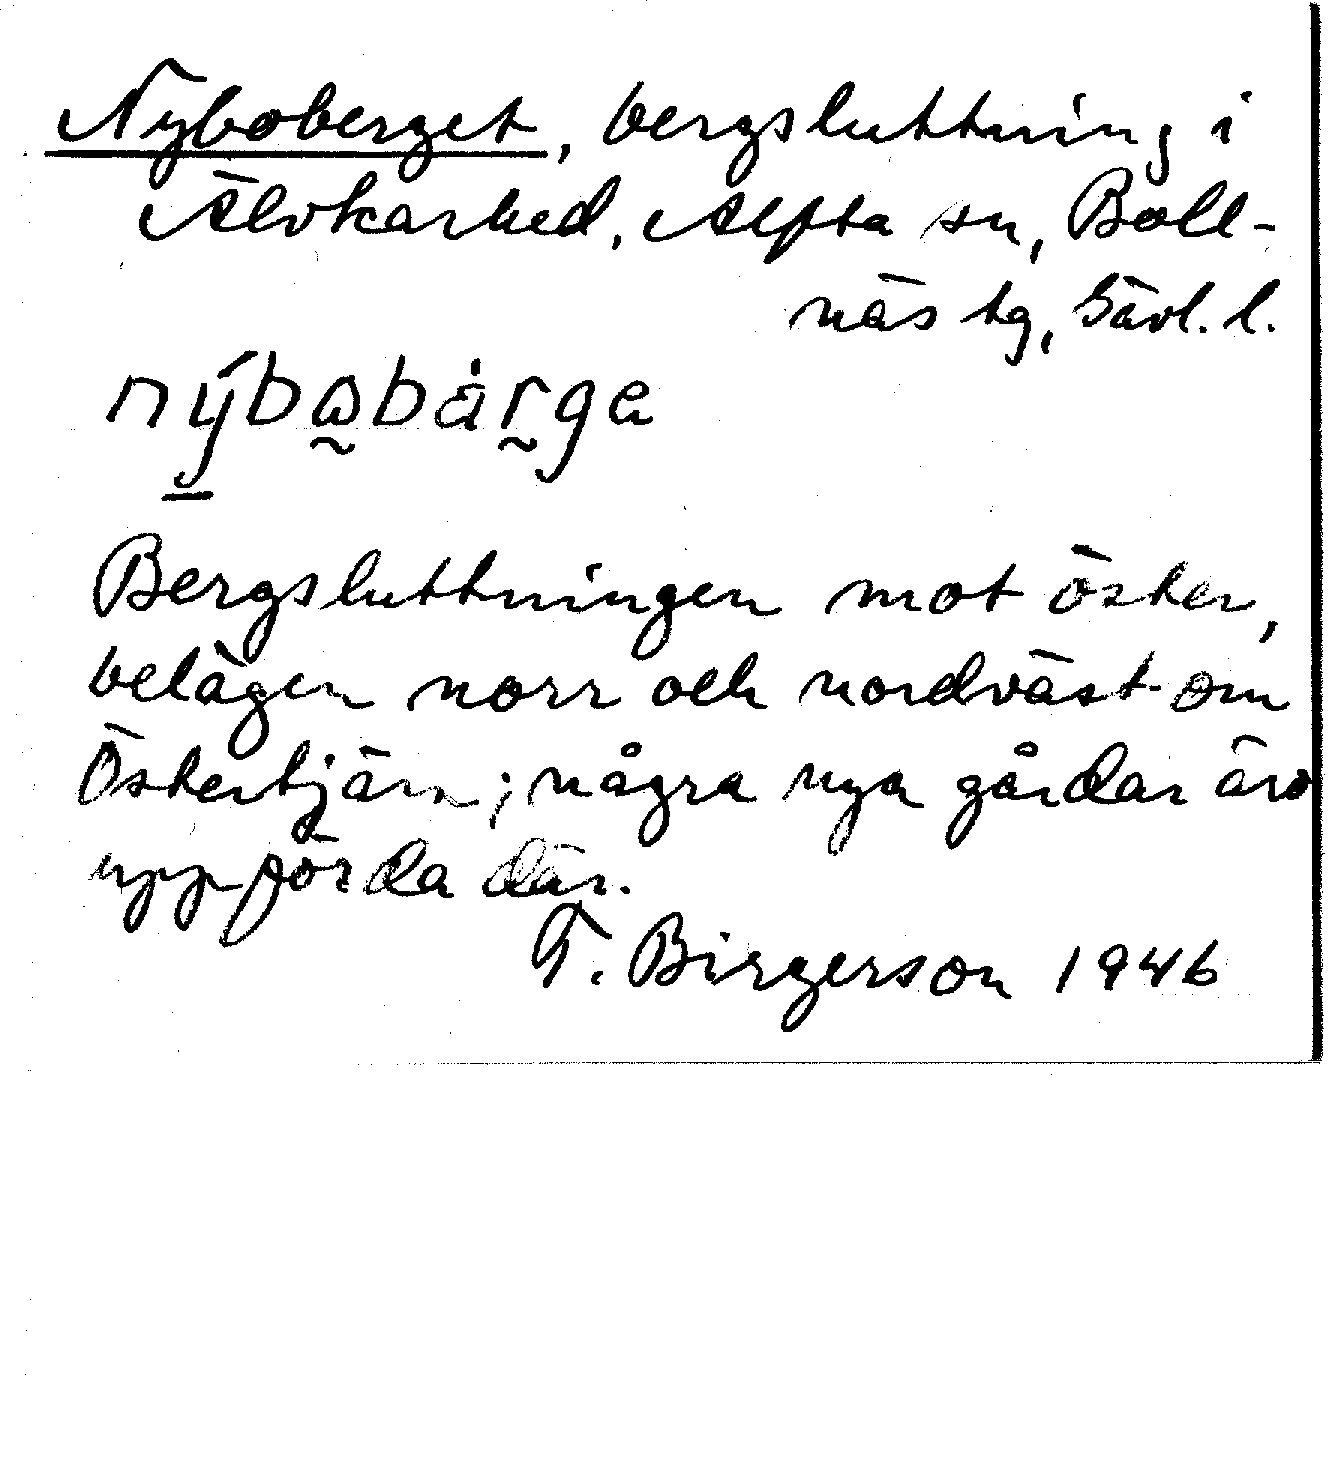 Nyboberget, bergsluttning i
Älvkarhed, Alfta sn, Boll-
näs tg, Gävl. l.
nýbobärga
Bergsluttningen mot öster,
belägen norr och nordväst om
Östertjärn; några nya gårdar äro
uppförda där.
T. Birgerson 1946